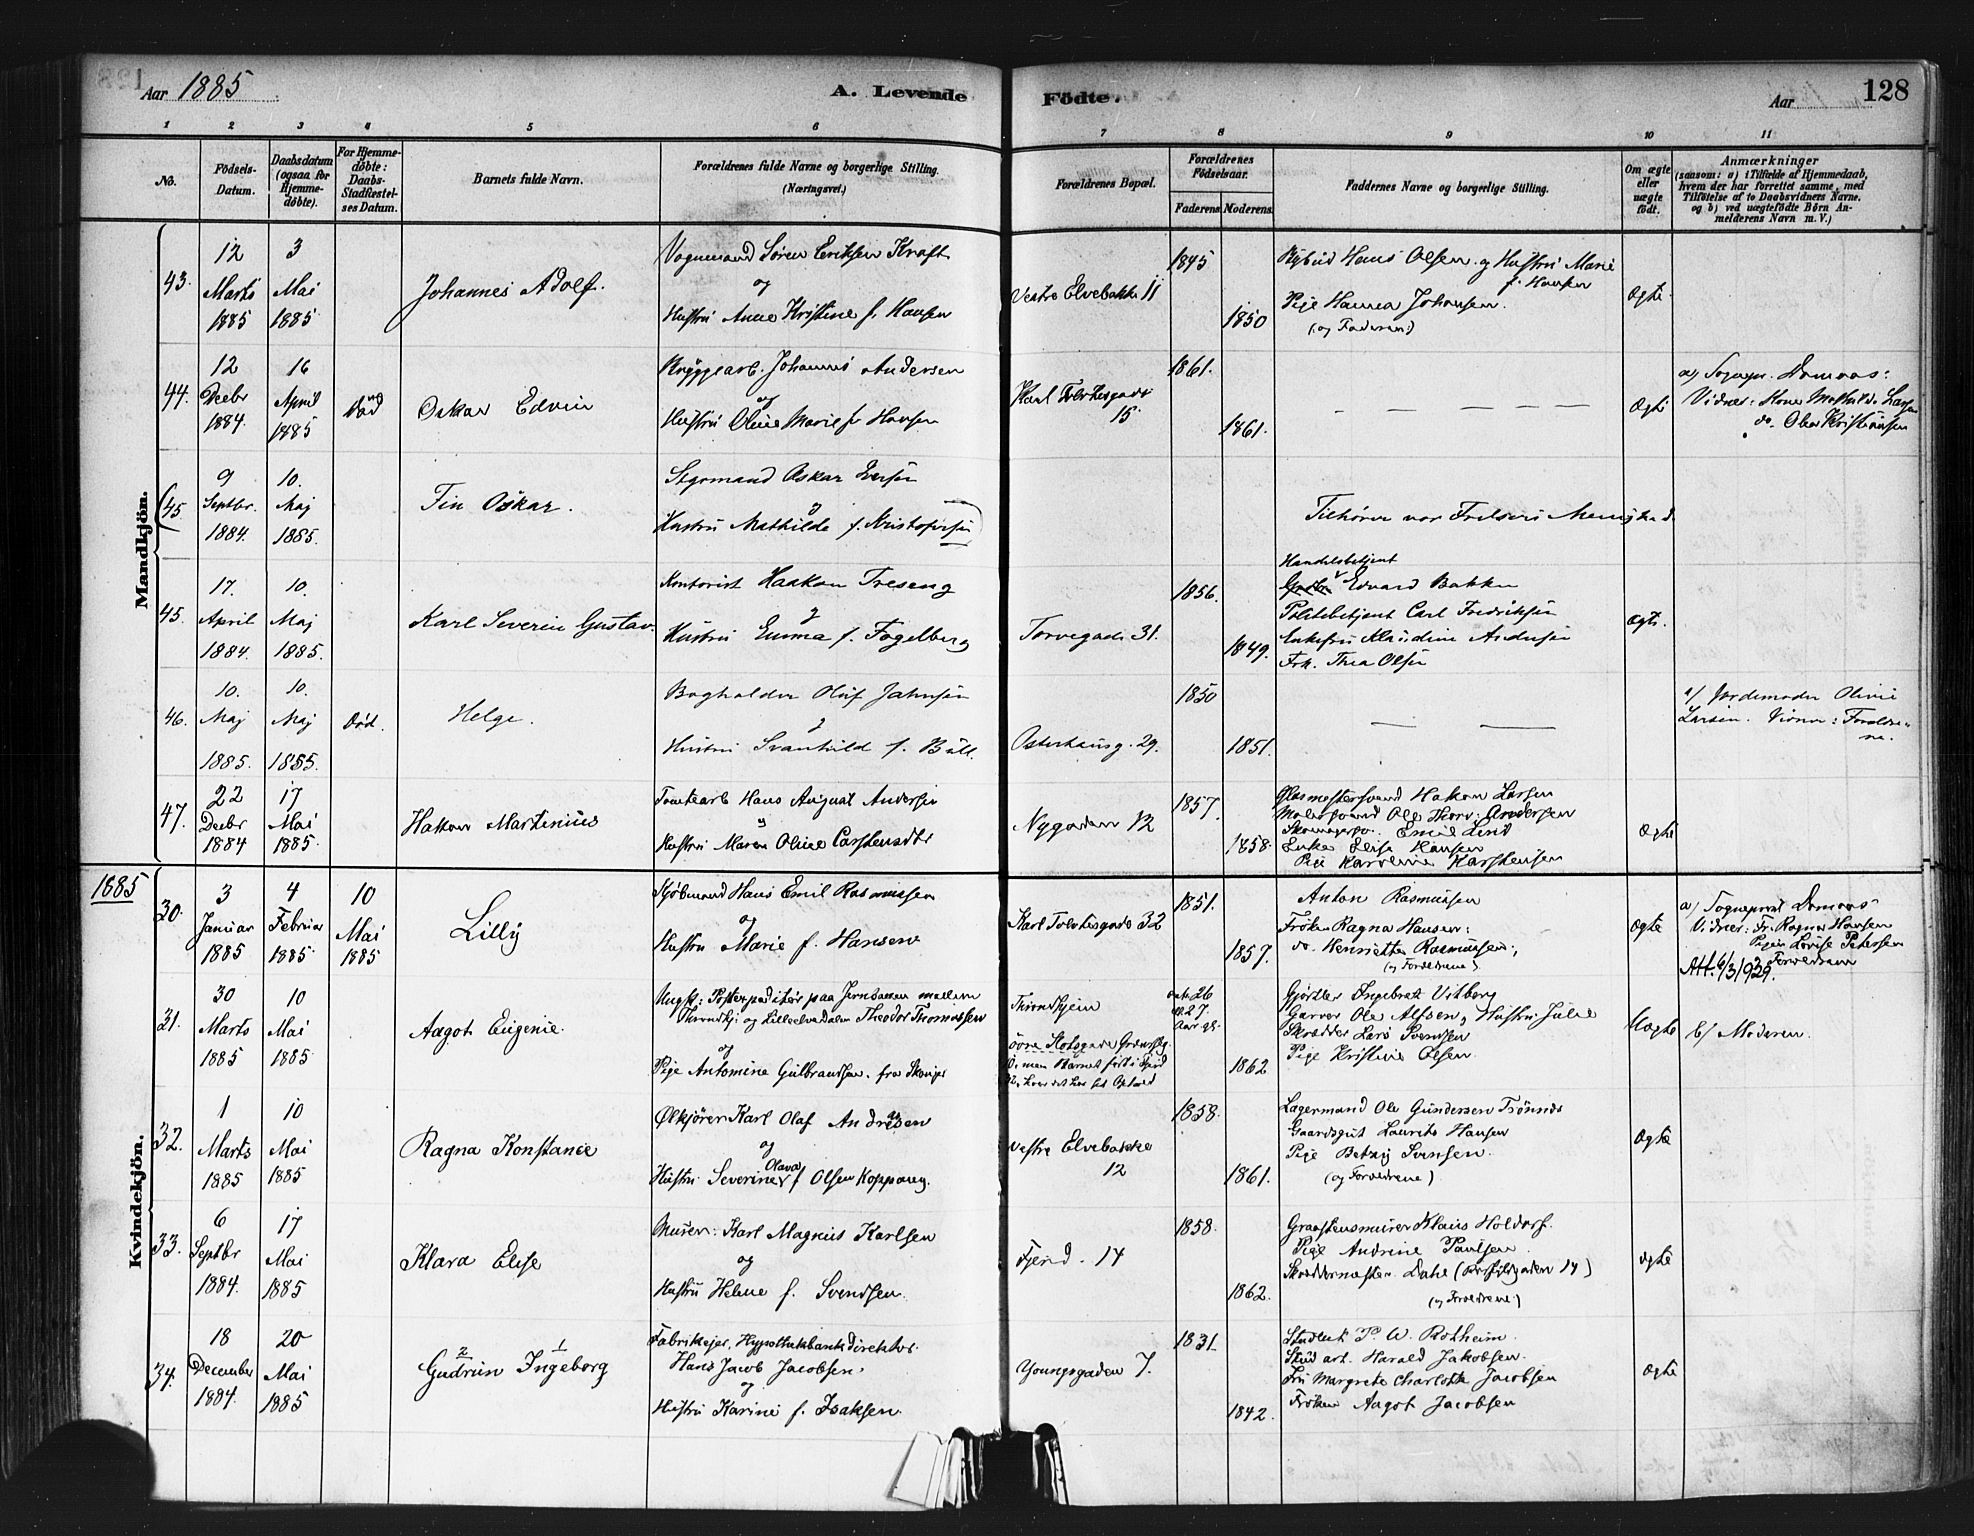 Aar 1885
A. Levende Födte.
Aar
128
1 2 3 4 5 6 7 8 9 10 11
No.
Födsels-Datum.
Daabsdatum (ogsaa for Hjemme-döbte).
For Hjemme-döbte: Daabs-Stadfæstel-ses Datum.
Barnets fulde Navn.
Forældrenes fulde Navne og borgerlige Stilling. (Næringsvei.)
Forældrenes Bopæl.
Forældrenes Födselsaar.
Faderens. Moderens.
Faddernes Navne og borgerlige Stilling.
Om ægte eller uægte födt.
Anmærkninger
(saasom: a) i Tilfælde af Hjemmedaab, hvem der har forrettet samme, med Tilföielse af to Daabsvidners Navne. og b) ved uægtefödte Börn An-melderens Navn m. V.)
Mandkjön.
43.
12 Marts 1885
3 Mai 1885
Johannes Adolf.
Vognmand Søren Eriksen Kraft
og
Hustru Anne Kristine f. Hansen
Vestre Elvebakke 11
1845
1850
Hans Olsen og Hustru Marie
f. Hansen
Pige Hanna Johansen.
(og Faderen)
Ægte
44.
12 Decbr 1884.
16 April 1885
død
Oskar Edvin
Bryggearb. Johannes Andersen
og
Hustru Oline Marie f. Hansen
Karl Toldtesgade
15
1861.
1861.
— — — — —
Ægte
a) Sognepr. Domaas:
Vidner: Kone Mathilde Larsen
do. Olea Kristiansen
(45.
9 Septbr. 1884.
10. Maj 1885.
Fin Oskar.
Stgrmand Oskar Eversen
og
Hustru Mathilde f. Kristofersen)
Tilhører vor Frelsers Menighed.
45.
17. April 1884.
10. Maj 1885.
Karl Severin Gustav.
Kontorist Haakon Treseng
og
Hustru Emma f. Fogelberg
Torvegade 31.
1856.
1849.
Handelsbetjent
Edvard Bakken
Politibetjent Carl Fredriksen
Enkefru Klaudine Andersen
Frk. Thea Olsen
Ægte.
46.
10. Maj 1885.
10. Maj 1885.
Død.
Helge.
Bogholder Oluf Jahnsen
og
Hustru Svanhild f. Bull.
Osterhausg. 29.
1850
1851.
— —
a) Jordemoder Olivie
Larsen. Vidner: Forældre-
ne.
47.
22 Decbr 1884
17 Mai 1885.
Hakon Martinius
Tomtearb Hans August Andersen
og
Hustru Maren Oline Carstensdtr
Nygaden 12
1857.
1858.
Glasmestersvend Hakon Larsen
Malersvend Ole Thorv. Andersen
Skomagersv. Emil Lind
Enke Elise Hansen
Pige Karoline Karstensen
Ægte
1885
Kvindekjön.
30.
3 Januar 1885
4 Februar 1885.
10 Mai 1885
Lilly
Kjøbmand Hans Emil Rasmussen
og
Hustru Marie f. Hansen
Karl Toldtesgade 32
1851.
1857.
Anton Rasmussen
Frøken Ragna Hansen:
do. Henriette Rasmussen;
(og Forældrene)
Ægte
a) Sogneprest Domaas
Vidner: Fr. Ragna Hansen
Pigen Lovise Petersen
Forældrene
Att. 6/3 1939.
31.
30 Marts 1885
10 Mai 1885.
Aagot Eugenie.
Ungk: Postexpeditør paa Jernbanen mellem
Throndhj: og Lilleelvedalen Theodor Thomassen
og
Pige Antomine Gulbrandsen. fra
Throndhjem
Øvre Slotsgade
26
27
Aar gl.
1862
Gjørtler Ingebret Vitberg
Garver Ole Alfsen, Hustru Julie
Skrædder Lars Svendsen
Pige Kristine Olsen.
Uægte
b/ Moderen.
32.
1 Marts 1885
10 Mai 1885
Ragna Konstance
Ølkjører Karl Olaf Andresen
og
Olava
Hustru Severine f Olsen Koppang.
Vestre Elvebakke
12
1858.
1861.
Lagermand Ole Gundersen Trønnes
Gaardsgut Laurits Hansen
Pige Betzy Svensen.
(og Forældrene)
Ægte
33.
6 Septbr 1884.
17 Mai 1885
Klara Elise
Murer: Karl Magnus Karlsen
og
Hustru Helene f. Svendsen.
Fjerd. 14
1858.
1862.
Graastensmurer Klaus Holdorf.
Pige Andrine Paulsen.
Skræddermester Dahl
(og Forældrene)
Ægte
34.
18 December 1884.
20 Mai 1885
2 1
Gudrun Ingeborg
Fabrikejer, Hypothekbankdirektør
Hans Jacob Jacobsen,
og
Hustru Karine f. Isaksen.
Youngsgaden 7.
1831.
1842.
Student P. W. Rotheim.
Stud art. Harald Jakobsen.
Fru Margrete Charlotte Jacobsen
Frøken Aagot Jacobsen
Ægte